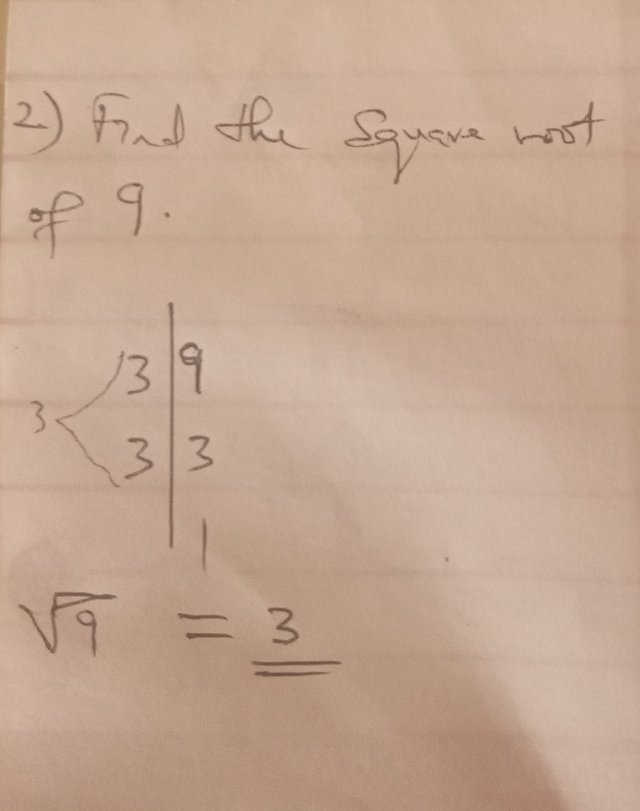 2) Find the Square root
of 9.
3 | 9
3 < 3 | 3
1
√9 = 3